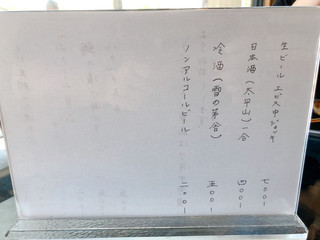 生ビール エビス中ジョッキ 七〇〇-
日本酒(太平山)一合 四〇〇-
冷酒(雪の茅舎) 五〇〇-
ノンアルコールビール 二〇〇-